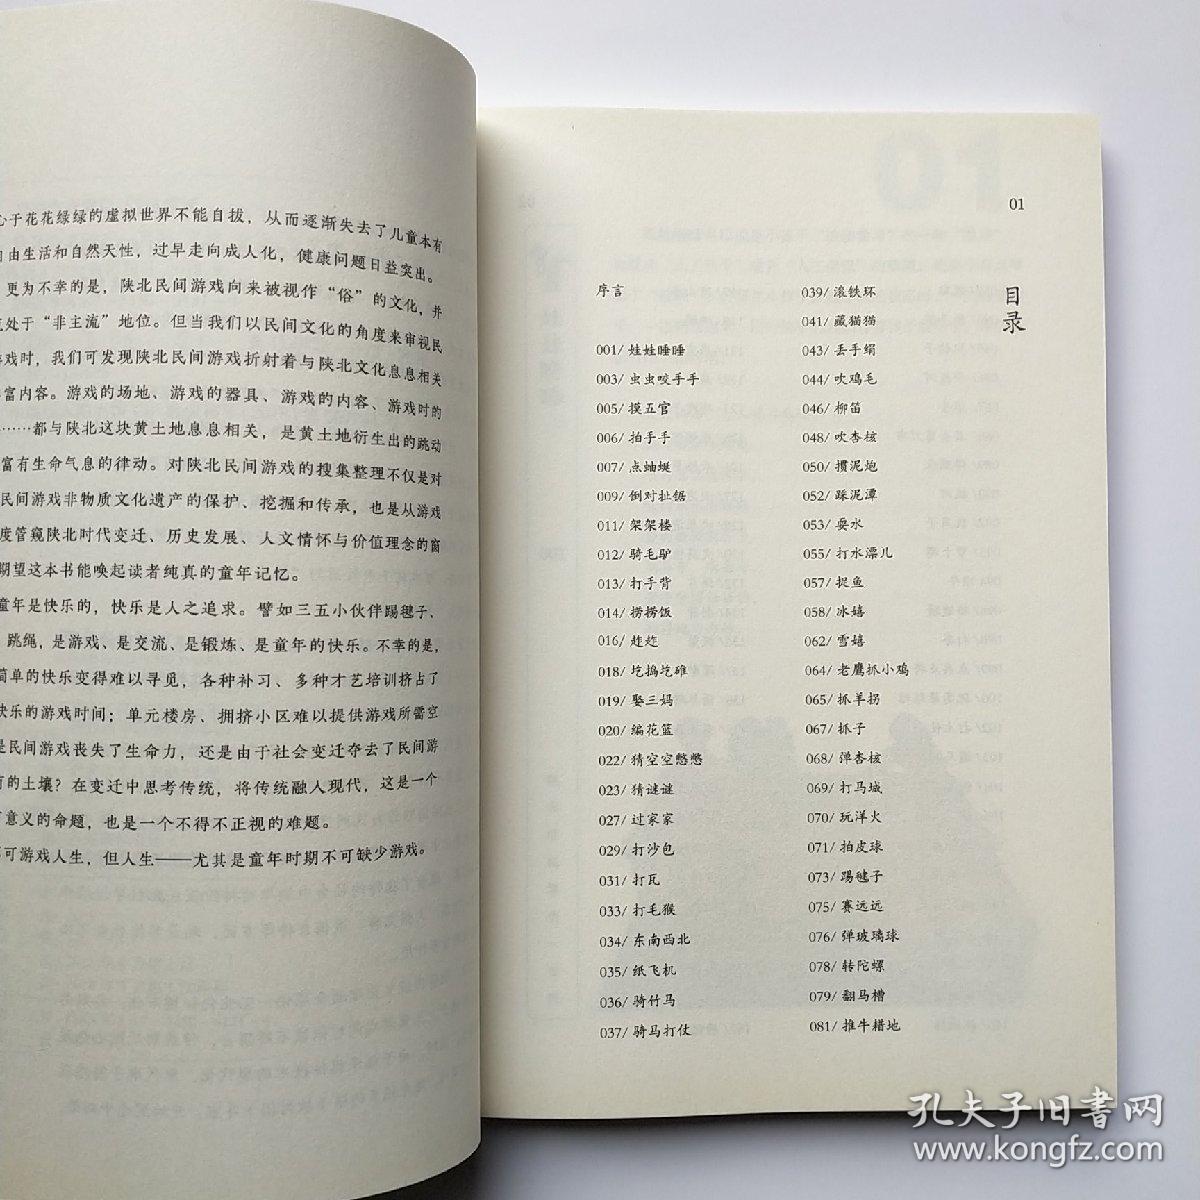 心于花花绿绿的虚拟世界不能自拔，从而逐渐失去了儿童本有
自由生活和自然天性，过早走向成人化，健康问题日益突出。
更为不幸的是，陕北民间游戏向来被视作“俗”的文化，并
处于“非主流”地位。但当我们以民间文化的角度来审视民
游戏时，我们可发现陕北民间游戏折射着与陕北文化息息相关
富内容。游戏的场地、游戏的器具、游戏的内容、游戏时的
……都与陕北这块黄土地息息相关，是黄土地衍生出的跳动
富有生命气息的律动。对陕北民间游戏的搜集整理不仅是对
民间游戏非物质文化遗产的保护、挖掘和传承，也是从游戏
度管窥陕北时代变迁、历史发展、人文情怀与价值理念的窗
期望这本书能唤起读者纯真的童年记忆。
童年是快乐的，快乐是人之追求。譬如三五小伙伴踢毽子、
跳绳，是游戏、是交流、是锻炼、是童年的快乐。不幸的是，
简单的快乐变得难以寻见，各种补习、多种才艺培训挤占了
快乐的游戏时间；单元楼房、拥挤小区难以提供游戏所需空
是民间游戏丧失了生命力，还是由于社会变迁夺去了民间游
的土壤？在变迁中思考传统，将传统融人现代，这是一个
意义的命题，也是一个不得不正视的难题。
可游戏人生，但人生——尤其是童年时期不可缺少游戏。
01
目录
序言
001/ 娃娃睡睡
003/ 虫虫咬手手
005/ 摸五官
006/ 拍手手
007/ 点蚰蜒
009/ 倒对扯锯
011/ 架架楼
012/ 骑毛驴
013/ 打手背
014/ 捞捞饭
016/
018/ 圪捣圪碓
019/ 娶三妈
020/ 编花篮
022/ 猜空空憋憋
023/ 猜谜谜
027/ 过家家
029/ 打沙包
031/ 打瓦
033/ 打毛猴
034/ 东南西北
035/ 纸飞机
036/ 骑竹马
037/ 骑马打仗
039/ 滚铁环
041/ 藏猫猫
043/ 丢手绢
044/ 吹鸡毛
046/ 柳笛
048/ 吹杏核
050/ 掼泥炮
052/ 踩泥潭
053/ 耍水
055/ 打水漂儿
057/ 捉鱼
058/ 冰嬉
062/ 雪嬉
064/ 老鹰抓小鸡
065/ 抓羊拐
067/ 抓子
068/ 弹杏核
069/ 打马城
070/ 玩洋火
071/ 拍皮球
073/ 踢毽子
075/ 赛远远
076/ 弹玻璃球
078/ 转陀螺
079/ 翻马槽
081/ 推牛耤地
孔夫子旧书网
www.kongfz.com